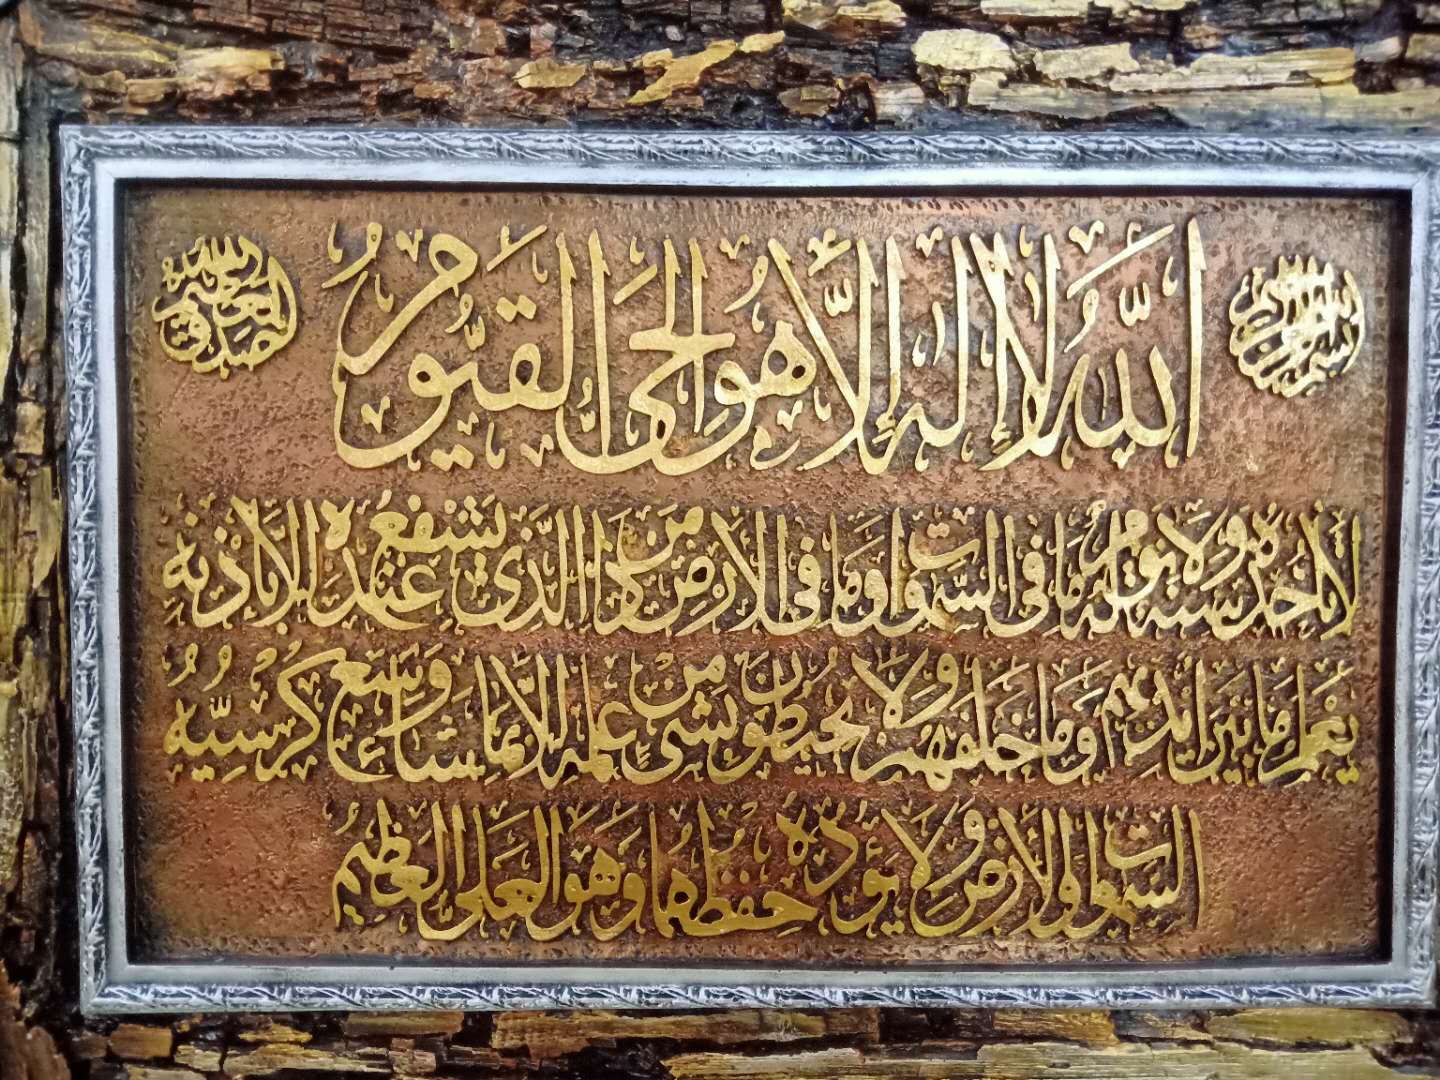 بسم الله الرحمن الرحيم
الله لا إله إلا هو الحي القيوم
صدق الله العظيم
لا تأخذه سنة ولا نوم له ما في السموات وما في الارض من ذا الذي يشفع عنده إلا بإذنه
يعلم ما بين أيديهم وما خلفهم ولا يحيطون بشيء من علمه إلا بما شاء وسع كرسيه
السموات والارض ولا يؤده حفظهما وهو العلي العظيم